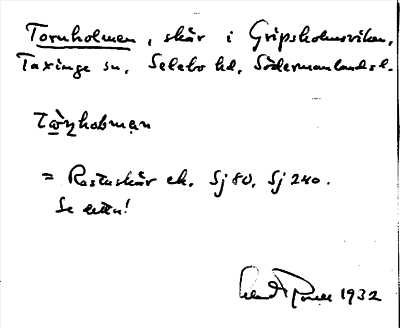 Tornholmen, skär i Gripsholmsviken,
Taxinge sn, Selebo hd, Södermanlands l.
= Rastaskär ek. Sj 80, Sj 240.
Se detta!
1932